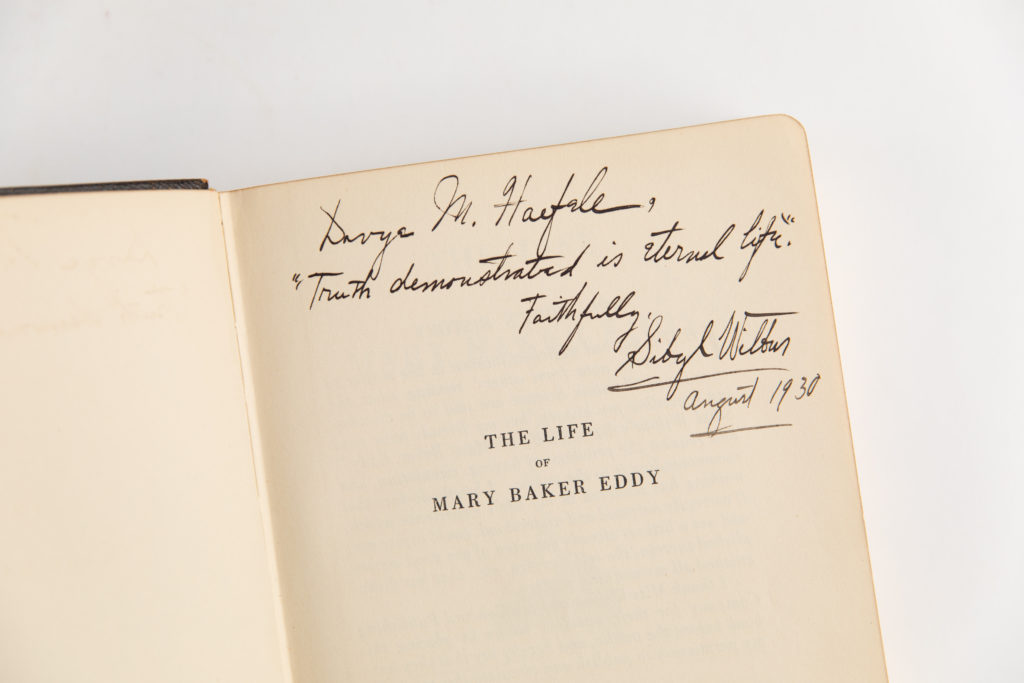 Davye M. Haefele,
"Truth demonstrated is eternal life".
Faithfully,
Sibyl Wilbur
August 1930
THE LIFE
OF
MARY BAKER EDDY